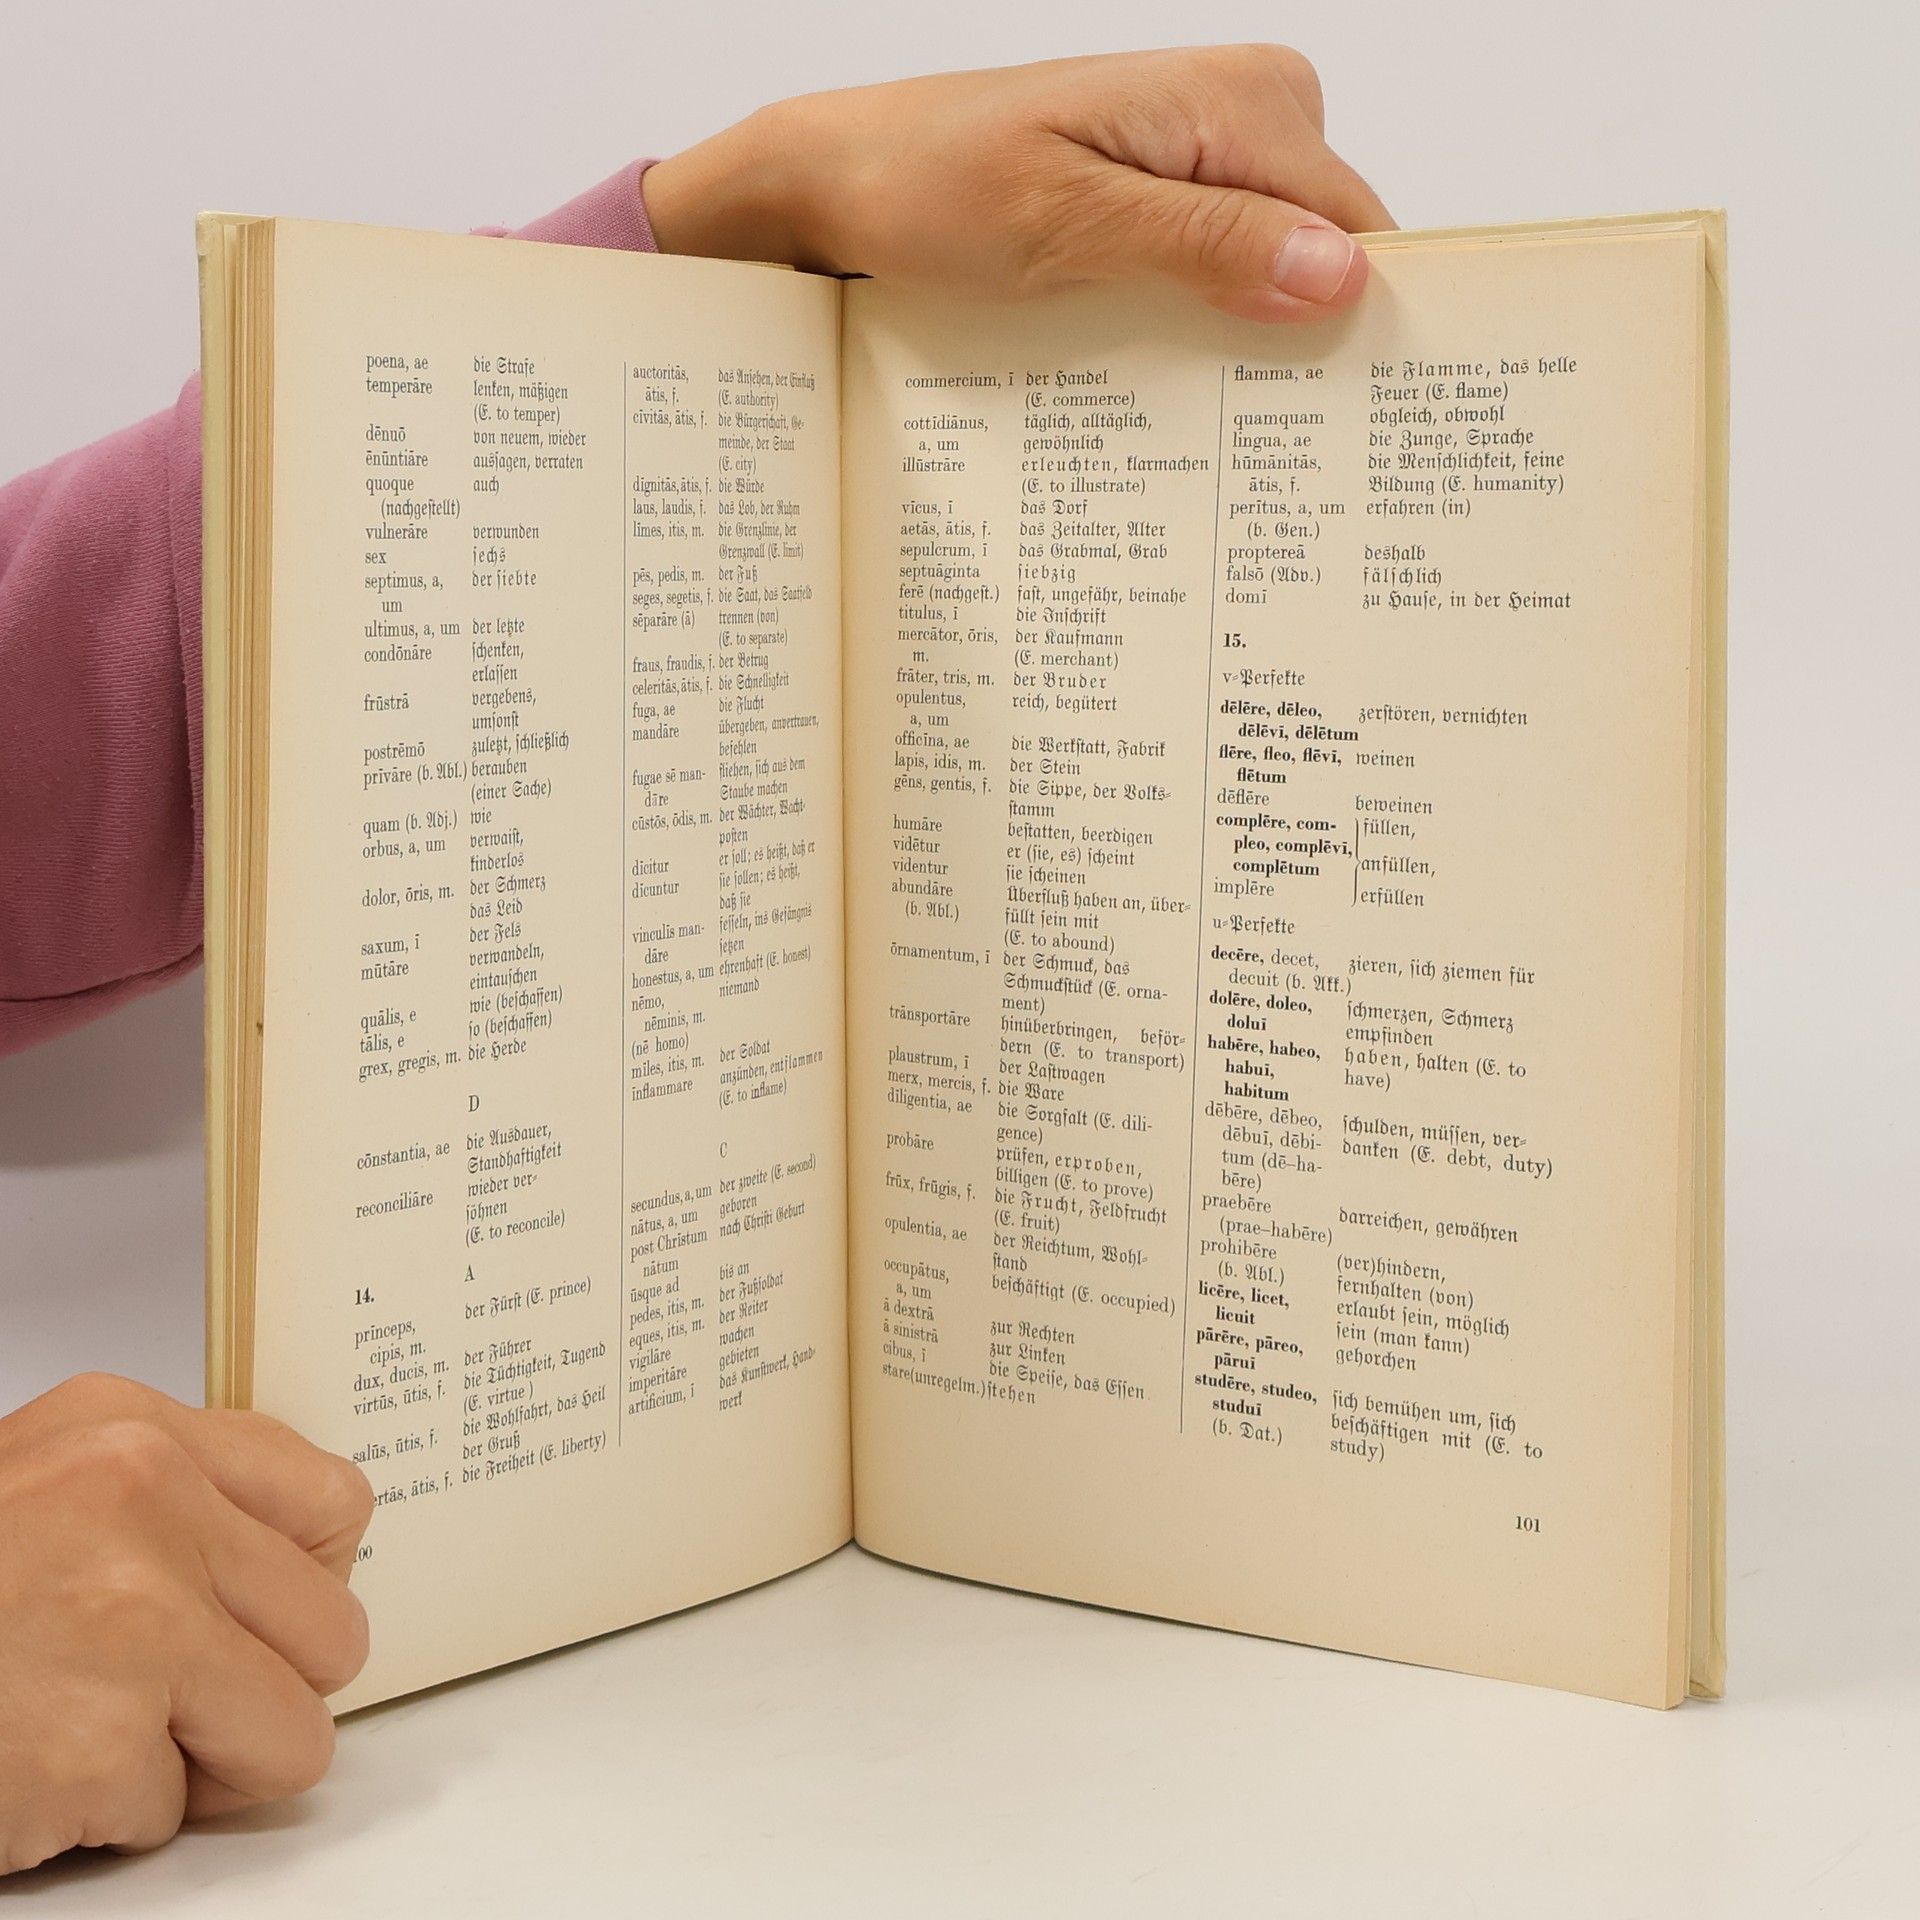 poena, ae die Strafe
temperāre lenken, mäßigen
(E. to temper)
dēnuō von neuem, wieder
ēnūntiāre aussagen, verraten
quoque auch
(nachgestellt)
vulnerāre verwunden
sex sechs
septimus, a, der siebte
um
ultimus, a, um der letzte
condōnāre schenken,
erlassen
frūstrā vergebens,
umsonst
postrēmō zuletzt, schließlich
prīvāre (b. Abl.) berauben
(einer Sache)
quam (b. Adj.) wie
orbus, a, um verwaist,
kinderlos
dolor, ōris, m. der Schmerz
das Leid
saxum, ī der Fels
mūtāre verwandeln,
eintauschen
quālis, e wie (beschaffen)
tālis, e so (beschaffen)
grex, gregis, m. die Herde
D
cōnstantia, ae die Ausdauer,
Standhaftigkeit
reconciliāre wieder ver-
söhnen
(E. to reconcile)
14. A
prīnceps, der Fürst (E. prince)
cipis, m.
dux, ducis, m. der Führer
virtūs, ūtis, f. die Tüchtigkeit, Tugend
(E. virtue)
salūs, ūtis, f. die Wohlfahrt, das Heil
der Gruß
ertās, ātis, f. die Freiheit (E. liberty)
00
auctoritās, das Ansehen, der Einfluß
ātis, f. (E. authority)
cīvitās, ātis, f. die Bürgerschaft, Ge-
meinde, der Staat
(E. city)
dīgnitās, ātis, f. die Würde
laus, laudis, f. das Lob, der Ruhm
līmes, itis, m. die Grenzlinie, der
Grenzwall (E. limit)
pēs, pedis, m. der Fuß
seges, segetis, f. die Saat, das Saatfeld
sēparāre (ā) trennen (von)
(E. to separate)
fraus, fraudis, f. der Betrug
celeritās, ātis, f. die Schnelligkeit
fuga, ae die Flucht
mandāre übergeben, anvertrauen,
befehlen
fugae sē man- fliehen, sich aus dem
dāre Staube machen
cūstōs, ōdis, m. der Wächter, Wacht-
posten
dīcitur er soll; es heißt, daß er
dīcuntur sie sollen; es heißt,
daß sie
vinculīs man- fesseln, ins Gefängnis
dāre setzen
honestus, a, um ehrenhaft (E. honest)
nēmo, niemand
nēminis, m.
(nē homo)
mīles, itis, m. der Soldat
īnflammare anzünden, entflammen
(E. to inflame)
C
secundus, a, um der zweite (E. second)
nātus, a, um geboren
post Chrīstum nach Christi Geburt
nātum
ūsque ad bis an
pedes, itis, m. der Fußsoldat
eques, itis, m. der Reiter
vigilāre wachen
imperitāre gebieten
artificium, ī das Kunstwerk, Hand-
werk
commercium, ī der Handel
(E. commerce)
cottīdiānus, täglich, alltäglich,
a, um gewöhnlich
illūstrāre erleuchten, klarmachen
(E. to illustrate)
vīcus, ī das Dorf
aetās, ātis, f. das Zeitalter, Alter
sepulcrum, ī das Grabmal, Grab
septuāginta siebzig
ferē (nachgest.) fast, ungefähr, beinahe
titulus, ī die Inschrift
mercātor, ōris, der Kaufmann
m. (E. merchant)
frāter, tris, m. der Bruder
opulentus, reich, begütert
a, um
officīna, ae die Werkstatt, Fabrik
lapis, idis, m. der Stein
gēns, gentis, f. die Sippe, der Volks-
stamm
humāre bestatten, beerdigen
vidētur er (sie, es) scheint
videntur sie scheinen
abundāre Überfluß haben an, über-
(b. Abl.) füllt sein mit
(E. to abound)
ōrnamentum, ī der Schmuck, das
Schmuckstück (E. orna-
ment)
trānsportāre hinüberbringen, beför-
dern (E. to transport)
plaustrum, ī der Lastwagen
merx, mercis, f. die Ware
dīligentia, ae die Sorgfalt (E. dili-
gence)
probāre prüfen, erproben,
billigen (E. to prove)
frūx, frūgis, f. die Frucht, Feldfrucht
(E. fruit)
opulentia, ae der Reichtum, Wohl-
stand
occupātus, beschäftigt (E. occupied)
a, um
ā dextrā zur Rechten
ā sinistrā zur Linken
cibus, ī die Speise, das Essen
stare(unregelm.)stehen
flamma, ae die Flamme, das helle
Feuer (E. flame)
quamquam obgleich, obwohl
lingua, ae die Zunge, Sprache
hūmānitās, die Menschlichkeit, feine
ātis, f. Bildung (E. humanity)
perītus, a, um erfahren (in)
(b. Gen.)
proptereā deshalb
falsō (Adv.) fälschlich
domī zu Hause, in der Heimat
15.
v-Perfekte
dēlēre, dēleo, zerstören, vernichten
dēlēvī, dēlētum
flēre, fleo, flēvī, weinen
flētum
dēflēre beweinen
complēre, com- füllen,
pleo, complēvī,
complētum anfüllen,
implēre erfüllen
u-Perfekte
decēre, decet, zieren, sich ziemen für
decuit (b. Akk.)
dolēre, doleo, schmerzen, Schmerz
doluī empfinden
habēre, habeo, haben, halten (E. to
habuī, have)
habitum
dēbēre, dēbeo, schulden, müssen, ver-
dēbuī, dēbi- danken (E. debt, duty)
tum (dē–ha-
bēre)
praebēre darreichen, gewähren
(prae–habēre)
prohibēre (ver)hindern,
(b. Abl.) fernhalten (von)
licēre, licet, erlaubt sein, möglich
licuit sein (man kann)
pārēre, pāreo, gehorchen
pāruī
studēre, studeo, sich bemühen um, sich
studuī beschäftigen mit (E. to
(b. Dat.) study)
101